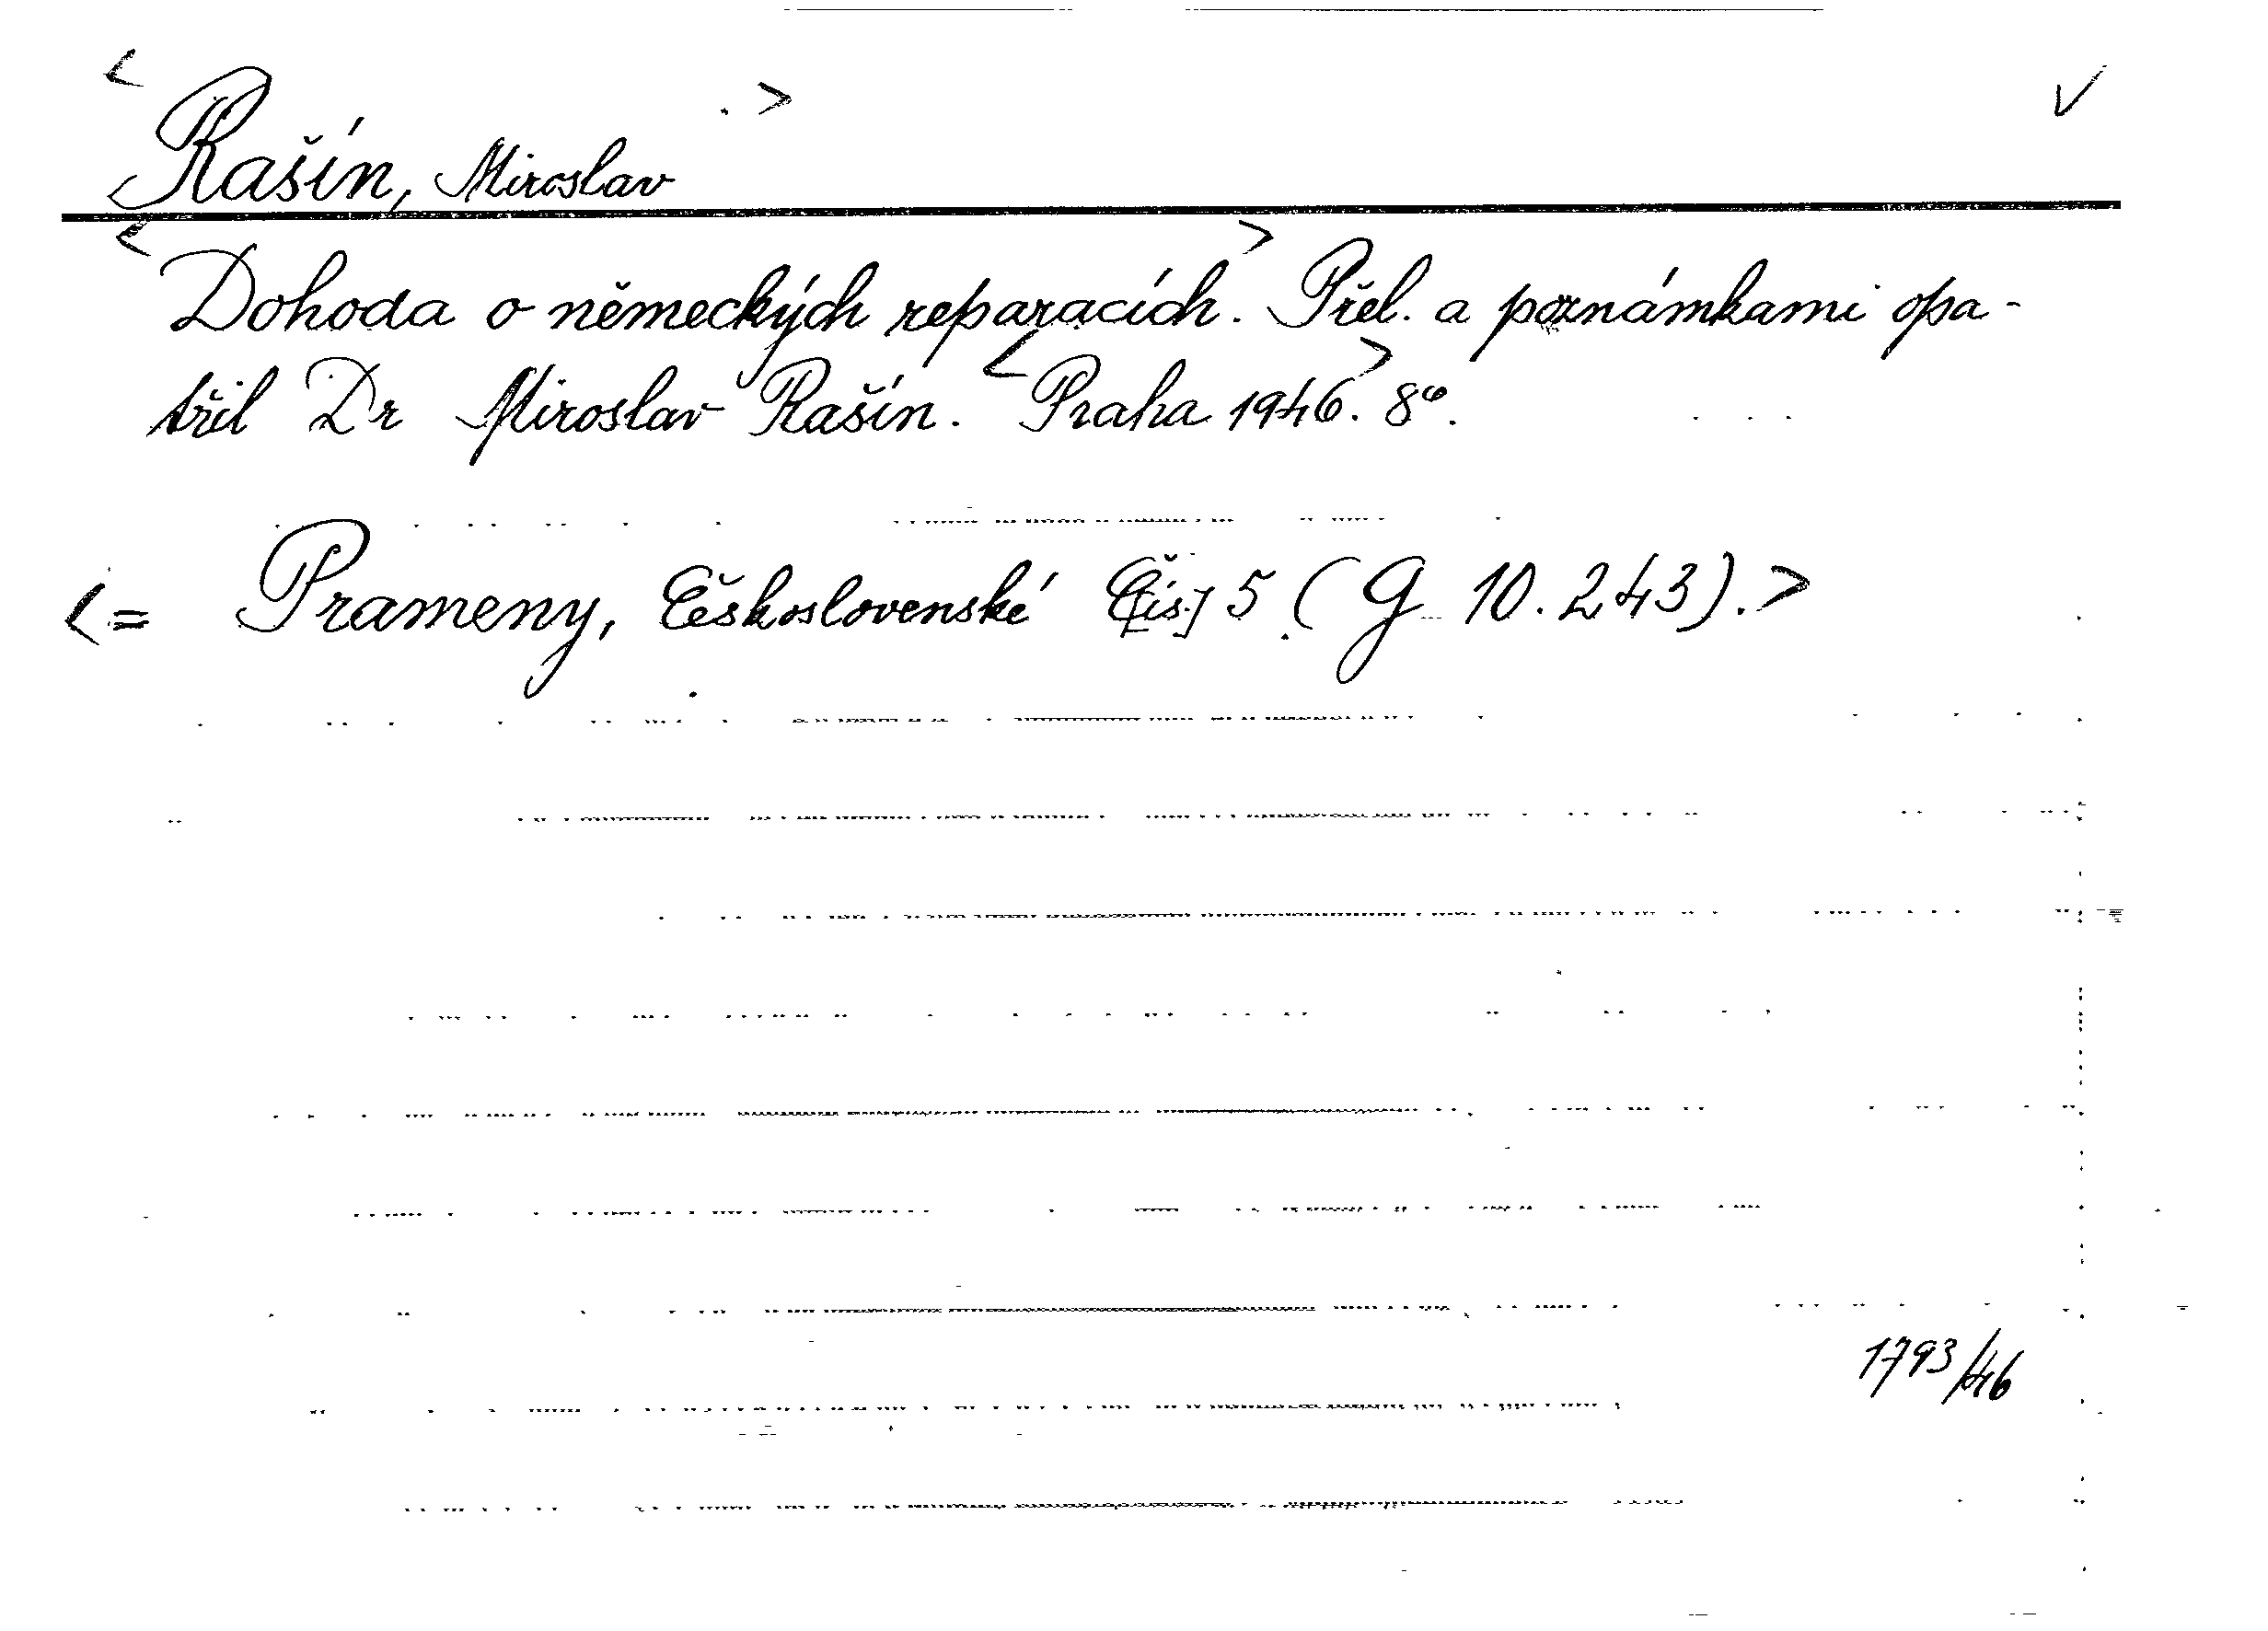 < Rašín, Miroslav > √
< Dohoda o německých reparacích. > Přel. a poznámkami opa-
třil Dr Miroslav Rašín. < Praha 1946. > 8°.
< = Prameny, Československé [Čís.] 5 (G 10.243). >
1793/46